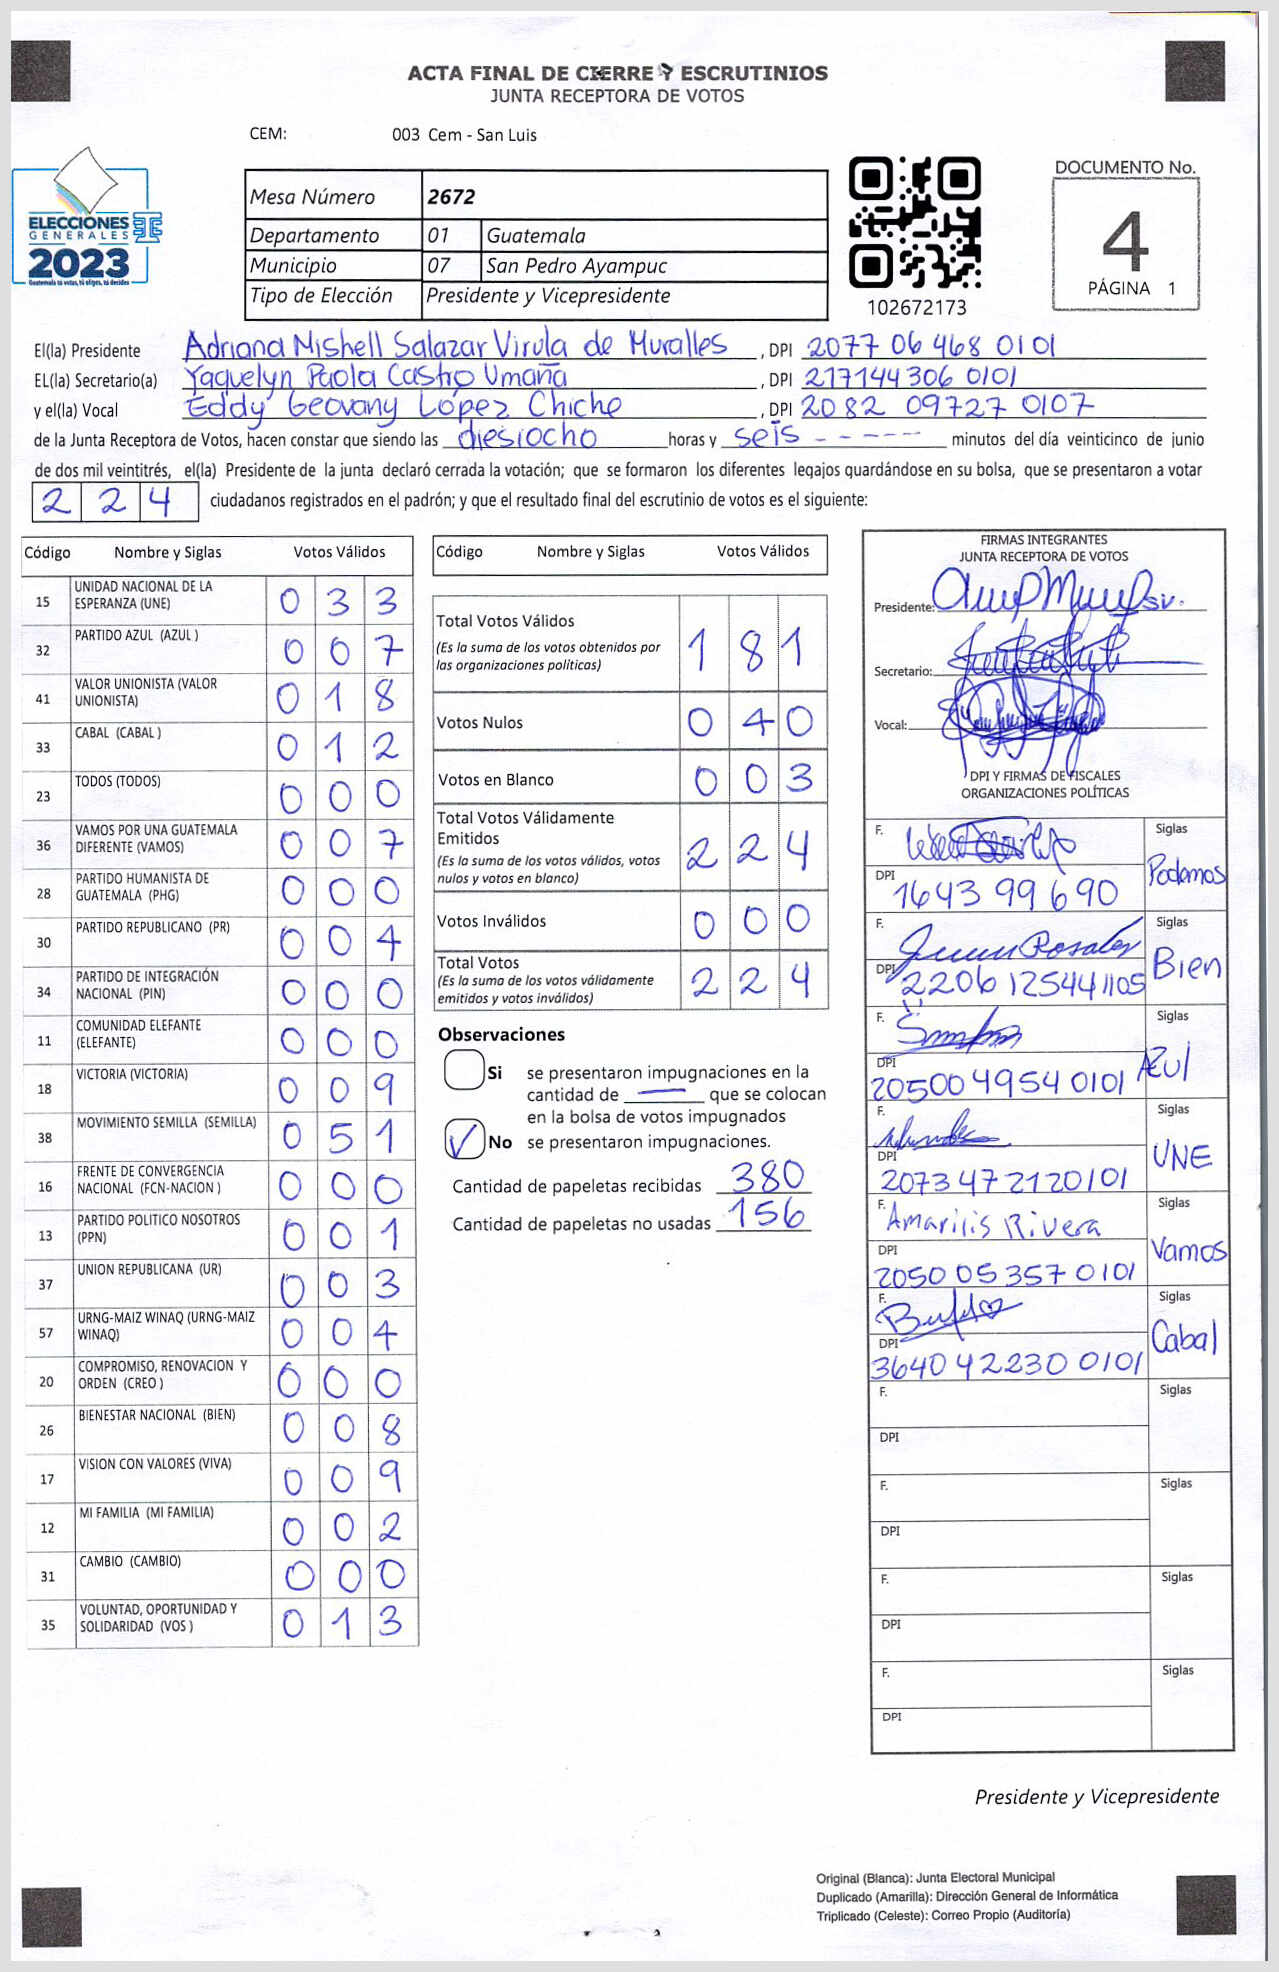 ACTA FINAL DE CIERRE Y ESCRUTINIOS
JUNTA RECEPTORA DE VOTOS
CEM: 003 Cem - San Luis
ELECCIONES
GENERALES
2023
Guatemala tú votas, tú eliges, tú decides
Mesa Número 2672
Departamento 01 Guatemala
Municipio 07 San Pedro Ayampuc
Tipo de Elección Presidente y Vicepresidente
102672173
DOCUMENTO No.
4
PÁGINA 1
El(la) Presidente Adriana Mishell Salazar Virula de Muralles, DPI 2077 06 468 0101
EL(la) Secretario(a) Yaquelyn Paola Castro Umaña, DPI 217144306 0101
y el(la) Vocal Eddy Geovany López Chiche, DPI 2082 09727 0107
de la Junta Receptora de Votos, hacen constar que siendo las diesiocho horas y seis ------ minutos del día veinticinco de junio
de dos mil veintitrés, el(la) Presidente de la junta declaró cerrada la votación; que se formaron los diferentes legajos guardándose en su bolsa, que se presentaron a votar
2 2 4 ciudadanos registrados en el padrón; y que el resultado final del escrutinio de votos es el siguiente:
Código Nombre y Siglas Votos Válidos
15 UNIDAD NACIONAL DE LA ESPERANZA (UNE) 0 3 3
32 PARTIDO AZUL (AZUL ) 0 0 7
41 VALOR UNIONISTA (VALOR UNIONISTA) 0 1 8
33 CABAL (CABAL ) 0 1 2
23 TODOS (TODOS) 0 0 0
36 VAMOS POR UNA GUATEMALA DIFERENTE (VAMOS) 0 0 7
28 PARTIDO HUMANISTA DE GUATEMALA (PHG) 0 0 0
30 PARTIDO REPUBLICANO (PR) 0 0 4
34 PARTIDO DE INTEGRACIÓN NACIONAL (PIN) 0 0 0
11 COMUNIDAD ELEFANTE (ELEFANTE) 0 0 0
18 VICTORIA (VICTORIA) 0 0 9
38 MOVIMIENTO SEMILLA (SEMILLA) 0 5 1
16 FRENTE DE CONVERGENCIA NACIONAL (FCN-NACION ) 0 0 0
13 PARTIDO POLITICO NOSOTROS (PPN) 0 0 1
37 UNION REPUBLICANA (UR) 0 0 3
57 URNG-MAIZ WINAQ (URNG-MAIZ WINAQ) 0 0 4
20 COMPROMISO, RENOVACION Y ORDEN (CREO ) 0 0 0
26 BIENESTAR NACIONAL (BIEN) 0 0 8
17 VISION CON VALORES (VIVA) 0 0 9
12 MI FAMILIA (MI FAMILIA) 0 0 2
31 CAMBIO (CAMBIO) 0 0 0
35 VOLUNTAD, OPORTUNIDAD Y SOLIDARIDAD (VOS ) 0 1 3
Código Nombre y Siglas Votos Válidos
Total Votos Válidos 1 8 1
(Es la suma de los votos obtenidos por
las organizaciones políticas)
Votos Nulos 0 4 0
Votos en Blanco 0 0 3
Total Votos Válidamente
Emitidos 2 2 4
(Es la suma de los votos válidos, votos
nulos y votos en blanco)
Votos Inválidos 0 0 0
Total Votos 2 2 4
(Es la suma de los votos válidamente
emitidos y votos inválidos)
Observaciones
Si se presentaron impugnaciones en la
cantidad de —— que se colocan
en la bolsa de votos impugnados
✓ No se presentaron impugnaciones.
Cantidad de papeletas recibidas 380
Cantidad de papeletas no usadas 156
FIRMAS INTEGRANTES
JUNTA RECEPTORA DE VOTOS
Presidente:
Secretario:
Vocal:
DPI Y FIRMAS DE FISCALES
ORGANIZACIONES POLÍTICAS
F. Siglas
Podemos
DPI 1643 99 690
F. Juan Rosales Siglas
Bien
DPI 2206 12544 1105
F. Siglas
Azul
DPI 20500 4954 0101
F. Siglas
UNE
DPI 2073 47 212 0101
F. Amarilis Rivera Siglas
Vamos
DPI 2050 05 357 0101
F. Siglas
Cabal
DPI 3640 42230 0101
F. Siglas
DPI
F. Siglas
DPI
F. Siglas
DPI
F. Siglas
DPI
Presidente y Vicepresidente
Original (Blanca): Junta Electoral Municipal
Duplicado (Amarilla): Dirección General de Informática
Triplicado (Celeste): Correo Propio (Auditoría)